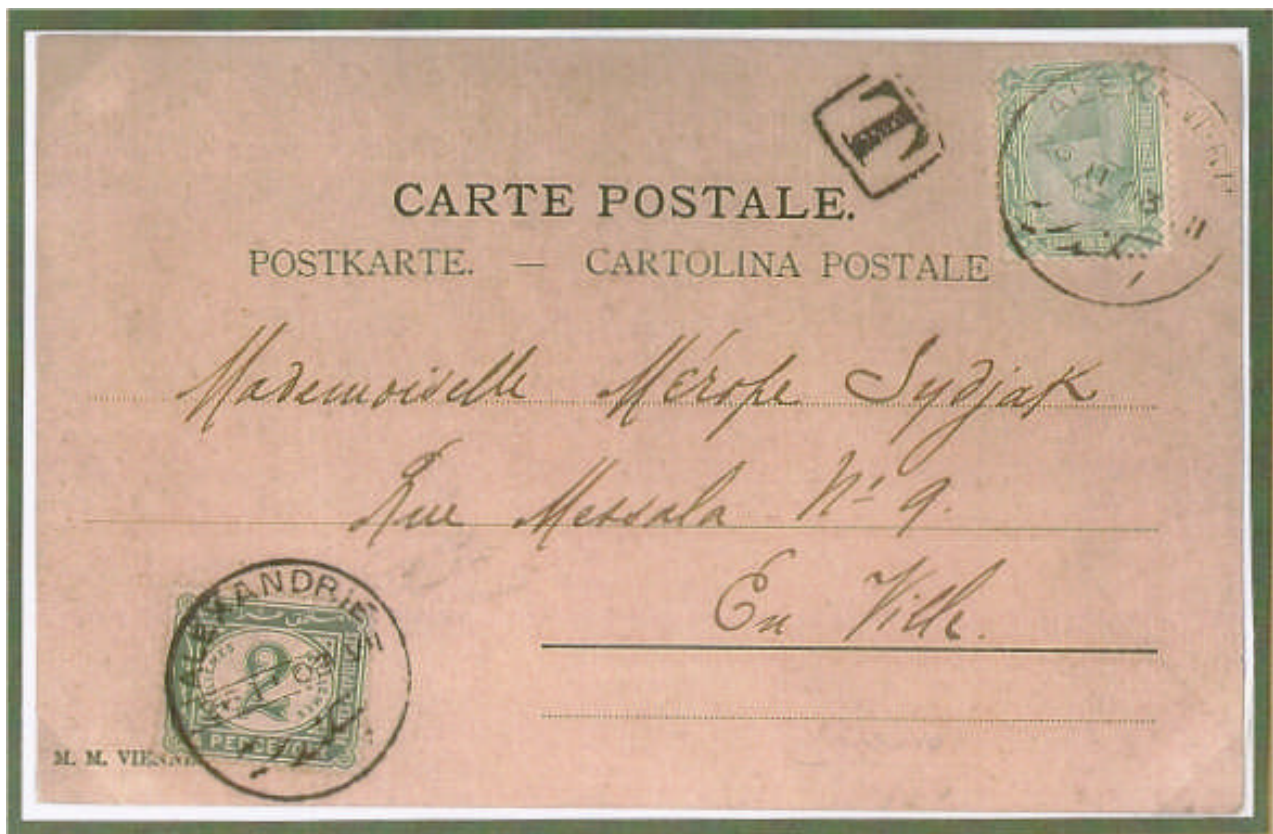 T
CARTE POSTALE.
POSTKARTE. — CARTOLINA POSTALE
Mademoiselle Mérope Sydjak
Rue Messala Nº 9.
En Ville.
ALEXANDRIE
2
M. M. VIENNE